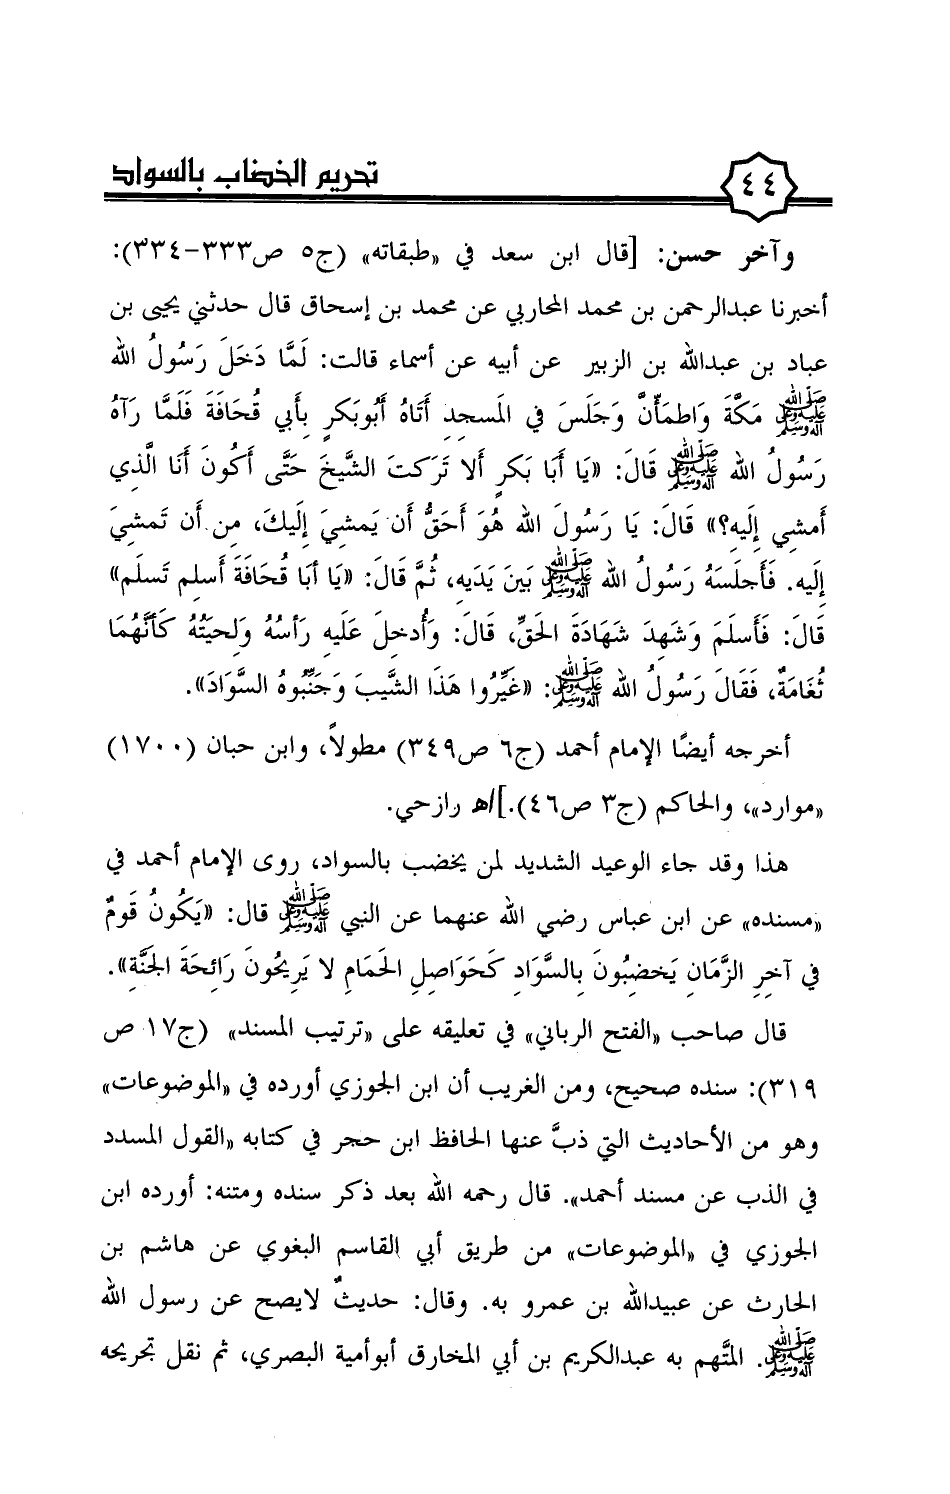 ٤٤ تحريم الخضاب بالسواد
وآخر حسن: [قال ابن سعد في «طبقاته» (ج٥ ص٣٣٣-٣٣٤):
أخبرنا عبدالرحمن بن محمد المحاربي عن محمد بن إسحاق قال حدثني يحيى بن
عباد بن عبدالله بن الزبير عن أبيه عن أسماء قالت: لَمَّا دَخَلَ رَسُولُ الله
ﷺ مَكَّةَ وَاطمَأَنَّ وَجَلَسَ في المَسجِدِ أَتَاهُ أَبُوبَكرٍ بِأَبي قُحَافَةَ فَلَمَّا رَآهُ
رَسُولُ الله ﷺ قَالَ: «يَا أَبَا بَكرٍ أَلا تَرَكتَ الشَّيخَ حَتَّى أَكُونَ أَنَا الَّذي
أَمشِي إِلَيهِ؟» قَالَ: يَا رَسُولَ الله هُوَ أَحَقُّ أَن يَمشِيَ إِلَيكَ، مِن أَن تَمشِيَ
إِلَيه. فَأَجلَسَهُ رَسُولُ الله ﷺ بَينَ يَدَيهِ، ثُمَّ قَالَ: «يَا أَبَا قُحَافَةَ أَسلِم تَسلَم»
قَالَ: فَأَسلَمَ وَشَهِدَ شَهَادَةَ الحَقِّ، قَالَ: وَأُدخِلَ عَلَيه رَأسُهُ وَلِحيَتُهُ كَأَنَّهُمَا
ثُغَامَةٌ، فَقَالَ رَسُولُ الله ﷺ: «غَيِّرُوا هَذَا الشَّيبَ وَجَنِّبُوهُ السَّوَادَ».
أخرجه أيضًا الإمام أحمد (ج٦ ص٣٤٩) مطولاً، وابن حبان (١٧٠٠)
«موارد»، والحاكم (ج٣ ص٤٦).]/ﻫ رازحي.
هذا وقد جاء الوعيد الشديد لمن يخضب بالسواد، روى الإمام أحمد في
«مسنده» عن ابن عباس رضي الله عنهما عن النبي ﷺ قال: «يَكُونُ قَومٌ
في آخِرِ الزَّمَانِ يَخضِبُونَ بِالسَّوَادِ كَحَوَاصِلِ الحَمَامِ لا يَرِيحُونَ رَائِحَةَ الجَنَّةِ».
قال صاحب «الفتح الرباني» في تعليقه على «ترتيب المسند» (ج١٧ ص
٣١٩): سنده صحيح، ومن الغريب أن ابن الجوزي أورده في «الموضوعات»
وهو من الأحاديث التي ذبَّ عنها الحافظ ابن حجر في كتابه «القول المسدد
في الذب عن مسند أحمد». قال رحمه الله بعد ذكر سنده ومتنه: أورده ابن
الجوزي في «الموضوعات» من طريق أبي القاسم البغوي عن هاشم بن
الحارث عن عبيدالله بن عمرو به. وقال: حديثٌ لايصح عن رسول الله
ﷺ. المتَّهم به عبدالكريم بن أبي المخارق أبوأمية البصري، ثم نقل تجريحه